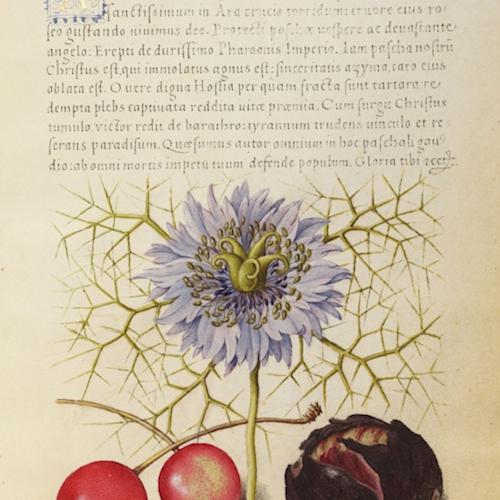 sanctissimum in Ara crucis torridum: cruore eius ro⸗
seo gustando uiuimus deo. Protecti paschæ uespere ac deuastante
angelo: Erepti de durissimo Pharaonis Imperio. Iam pascha nostrũ
Christus est, qui immolatus agnus est: sinceritatis azyma, caro eius
oblata est. O uere digna Hostia per quam fracta sunt tartara, re⸗
dempta plebs captiuata reddita uitæ præmia. Cum surgit Christus
tumulo, uictor redit de barathro: tyrannum trudens uinculo et re⸗
serans paradisum. Quæsumus autor omnium in hoc paschali gau⸗
dio: ab omni mortis impetu tuum defende populum. Gloria tibi